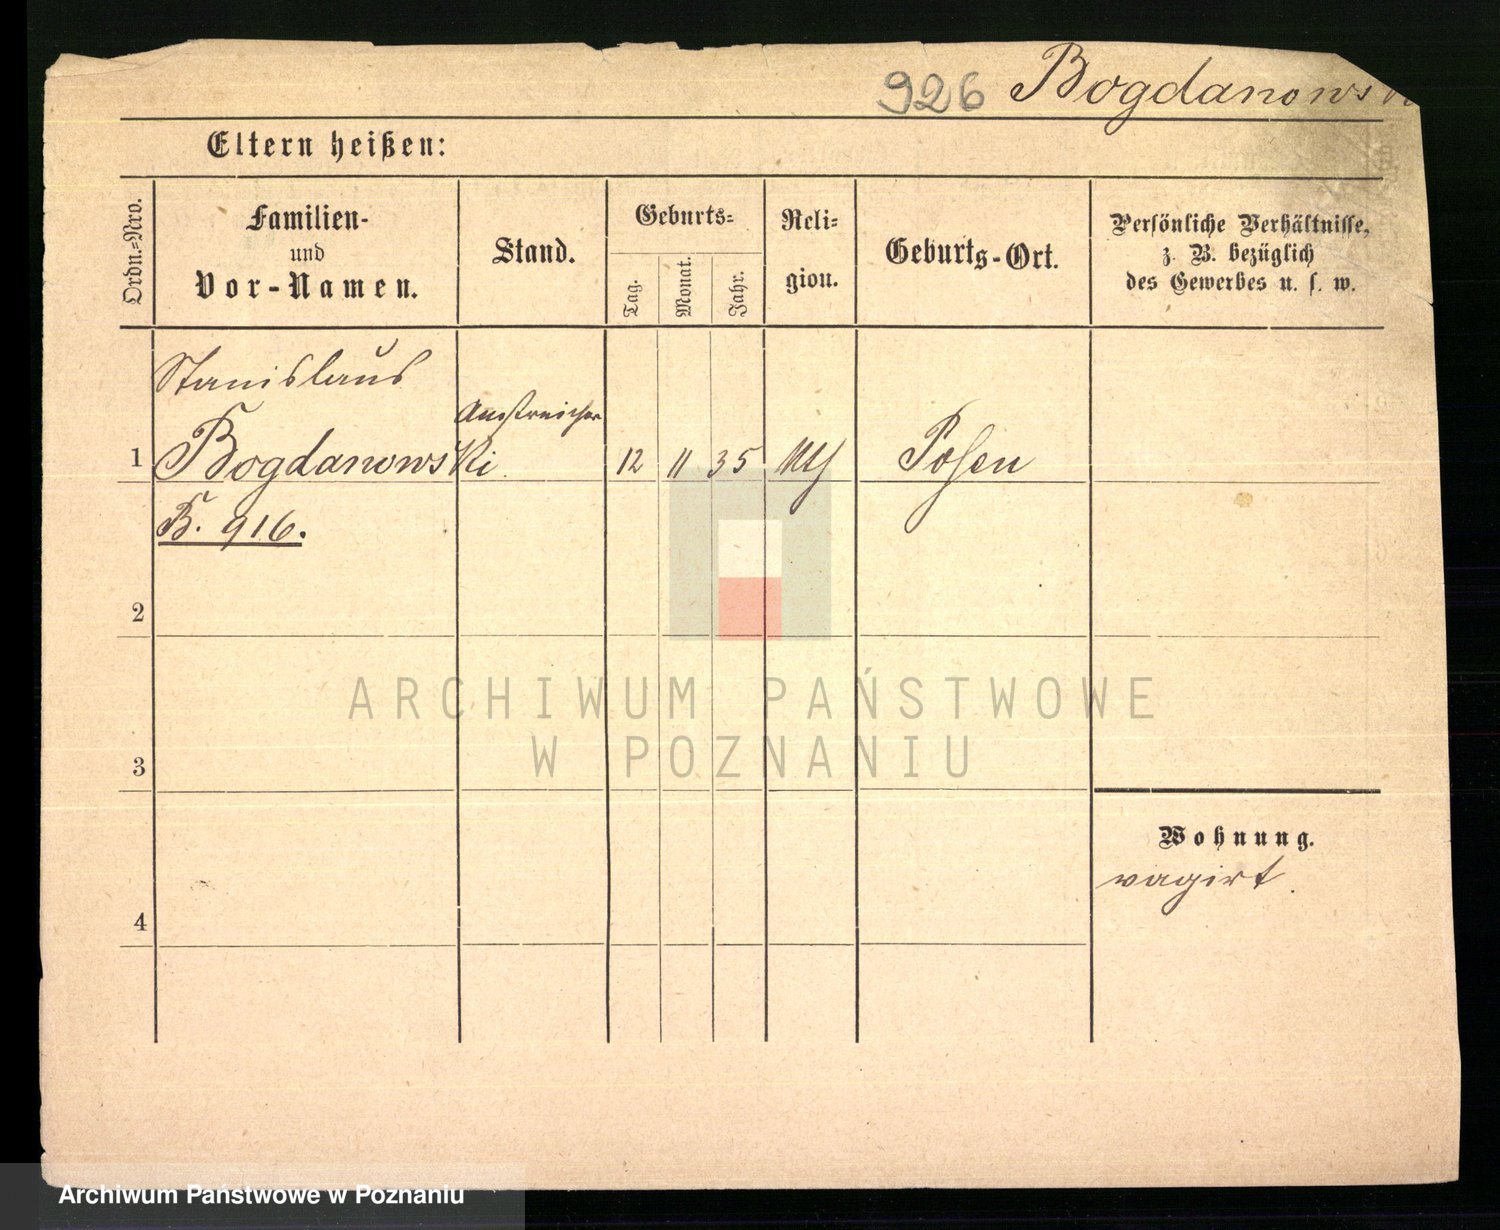 926 Bogdanowsk
Eltern heißen:
Ordn.=Nro.
Familien-
und
Vor-Namen.
Stand.
Geburts=
Tag.
Monat.
Jahr.
Reli=
gion.
Geburts-Ort.
Persönliche Verhältnisse,
z. B. bezüglich
des Gewerbes u. s. w.
Stanislaus
Anstreicher
1 Bogdanowski 12 11 35 Posen
B. 916.
2
3
4
Wohnung.
vagirt.
ARCHIWUM PAŃSTWOWE
W POZNANIU
Archiwum Państwowe w Poznaniu